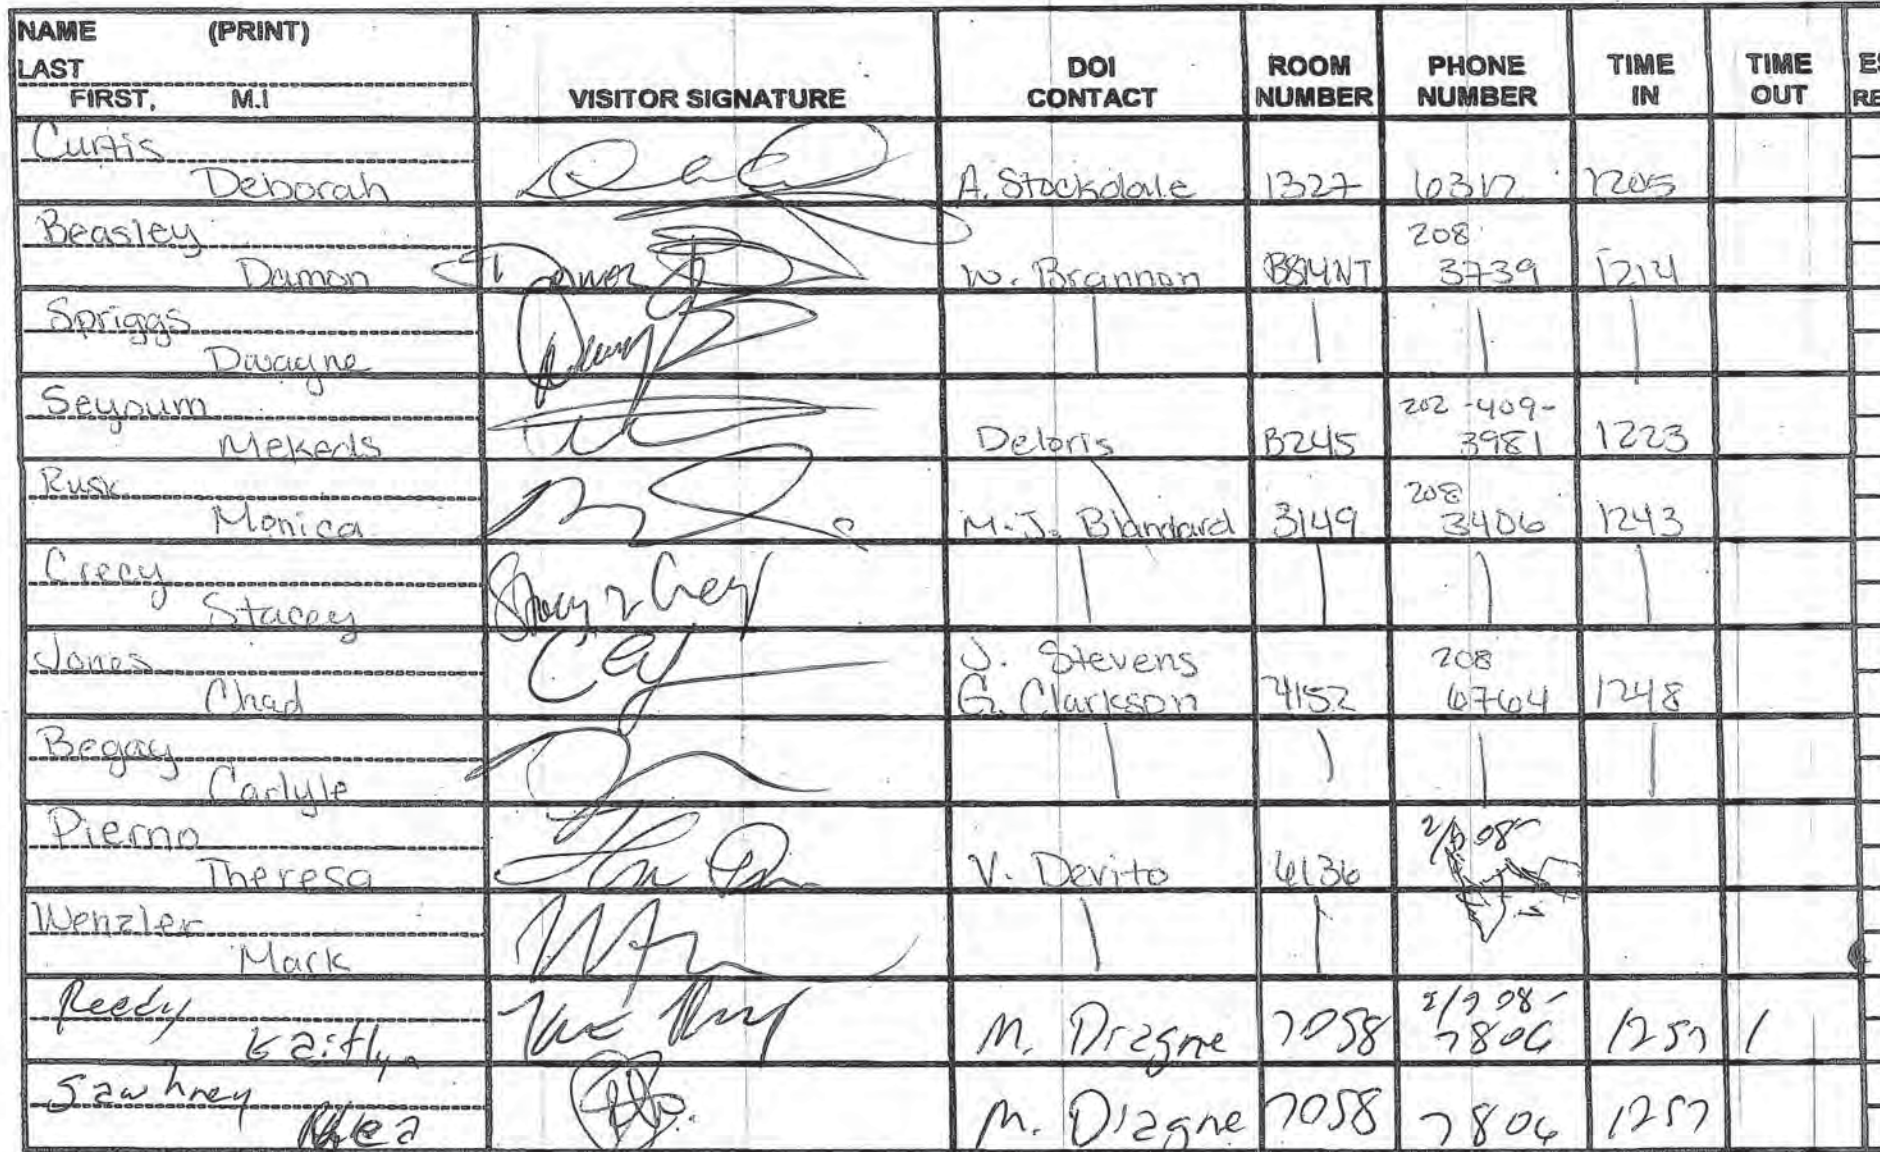 NAME (PRINT)
LAST
FIRST, M.I
VISITOR SIGNATURE
DOI CONTACT
ROOM NUMBER
PHONE NUMBER
TIME IN
TIME OUT
Curtis
Deborah A. Stockdale 1327 6317 1205
Beasley 208
Damon W. Brannon 3739 1214
Spriggs
Dwayne
Seyoum 202-409-
Deloris B245 3981 1223
Rusk 208
Monica M.J. 3149 3406 1243
Crecy
Stacey
Jones J. Stevens 208
Chad G. Clarkson 4152 6764 1248
Begay
Carlyle
Pierno
Theresa V. Devito 4136
Wenzler
Mark
Reedy
Kaitlyn M. Diagne 7058 7806 1257
Sawhney
M. Diagne 7058 7806 1257